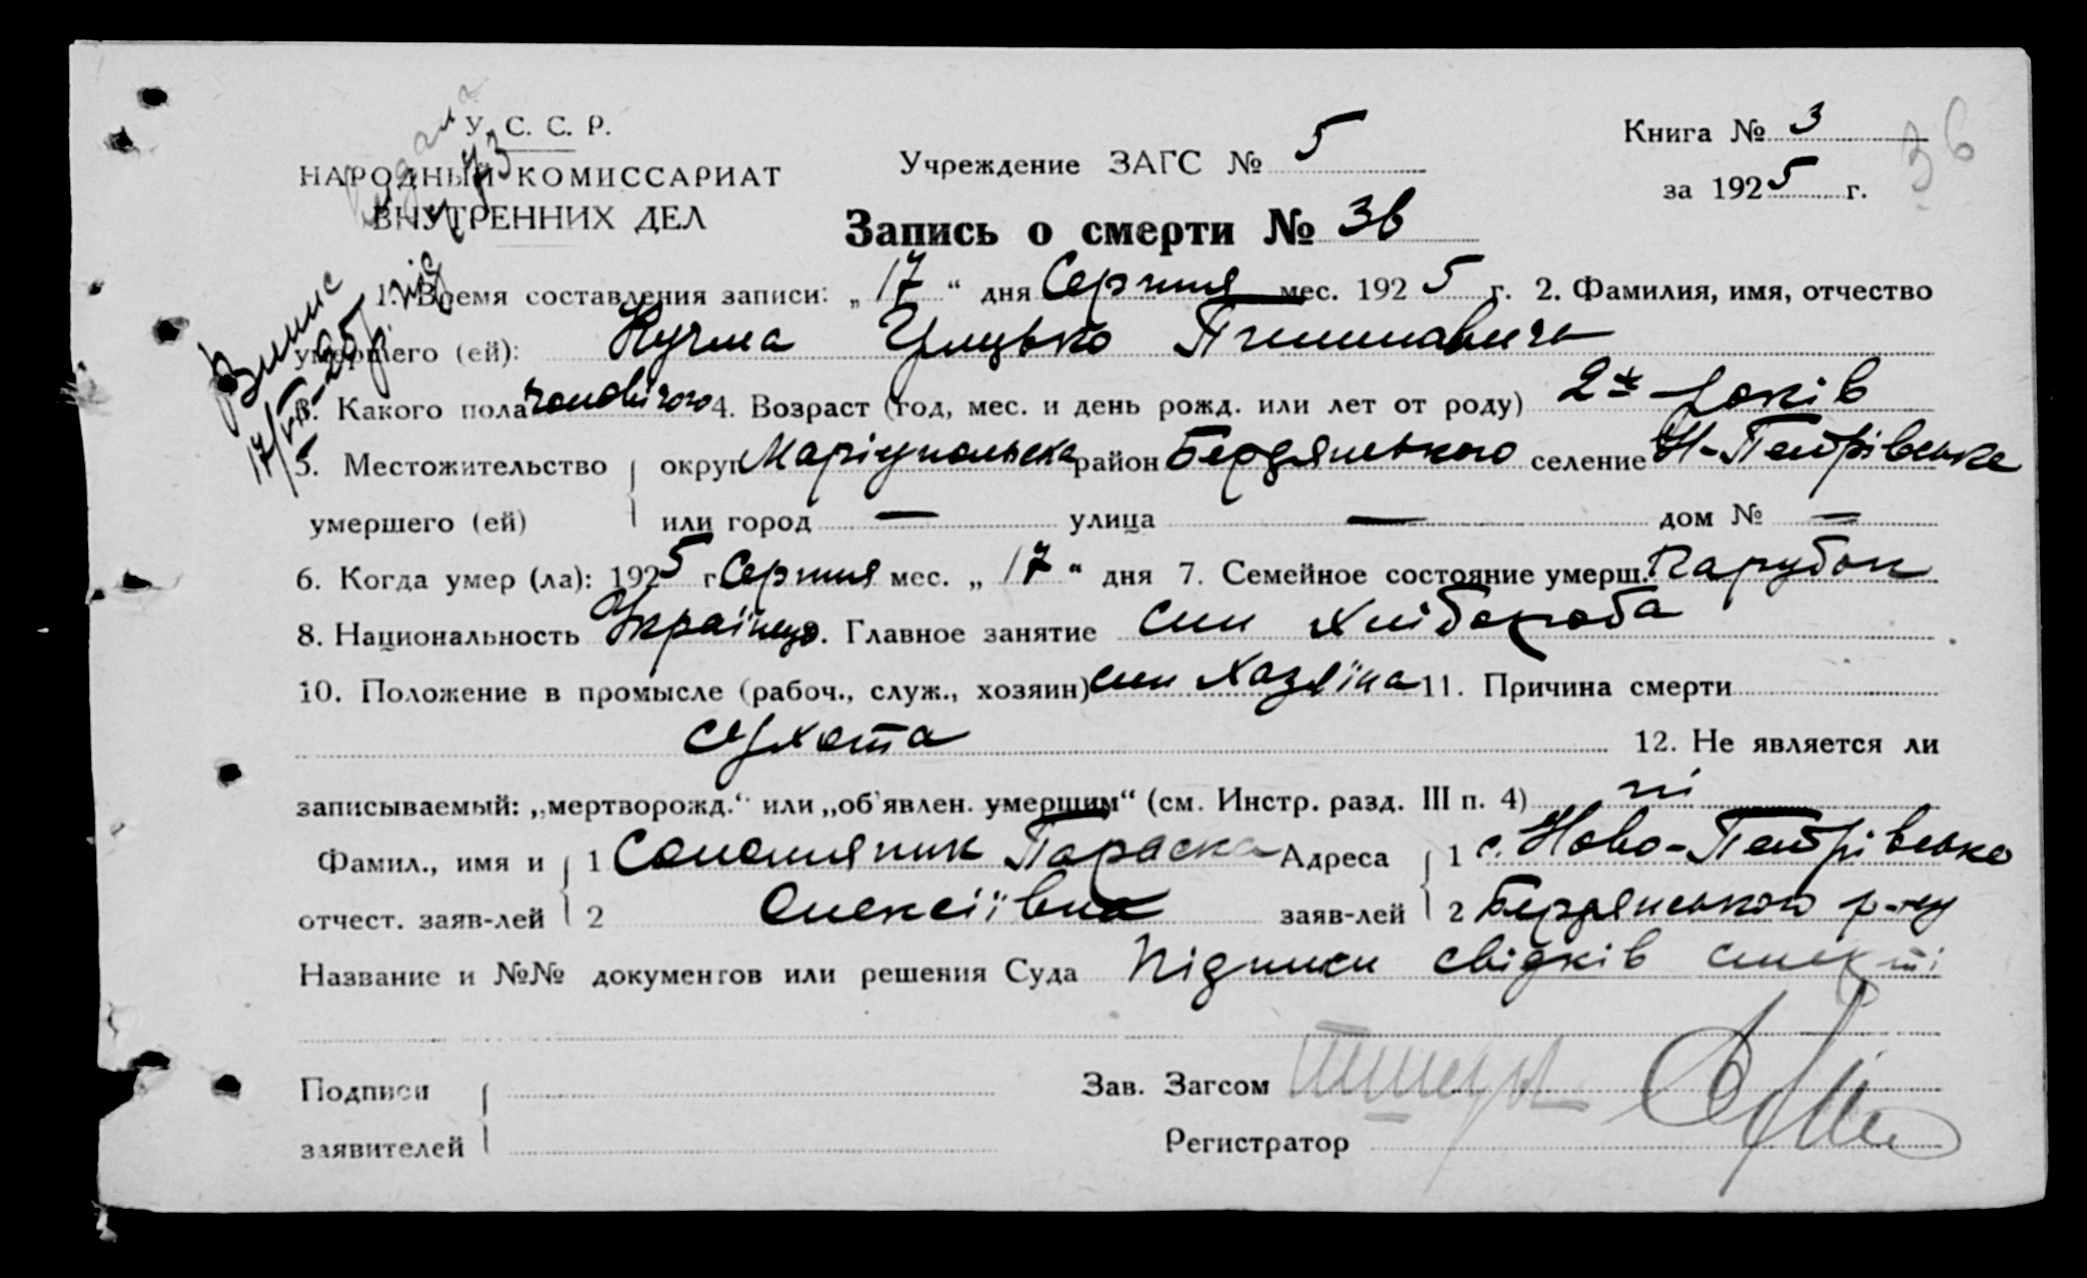 У. С. С. Р.
НАРОДНЫЙ КОМИССАРИАТ
ВНУТРЕННИХ ДЕЛ
Учреждение ЗАГС № 5
Книга № 3
за 1925 г.
36
Запись о смерти № 36
Видала
Випис
17/VIII-25р. під
№ 73
1. Время составления записи: „17“ дня Серпня мес. 1925 г. 2. Фамилия, имя, отчество
умершего (ей): Кучма Грицько
3. Какого пола чоловічого 4. Возраст (год, мес. и день рожд. или лет от роду) 2х років
5. Местожительство округ Маріупольська район Бердянського селение Н-Петрівське
умершего (ей) или город — улица — дом № —
6. Когда умер (ла): 1925 г. Серпня мес. „17“ дня 7. Семейное состояние умерш. Парубок
8. Национальность Українец 9. Главное занятие син хлібороба
10. Положение в промысле (рабоч., служ., хозяин) син хазяїна 11. Причина смерти
сухота 12. Не является ли
записываемый: „мертворожд.“ или „об'явлен. умершим“ (см. Инстр. разд. III п. 4) ні
Фамил., имя и 1 Соломяник Параска Адреса 1 с. Ново-Петрівське
отчест. заяв-лей 2 Олексіївна заяв-лей 2 Бердянського р-ну
Название и №№ документов или решения Суда Підписи свідків смерті
Подписи
заявителей
Зав. Загсом
Регистратор